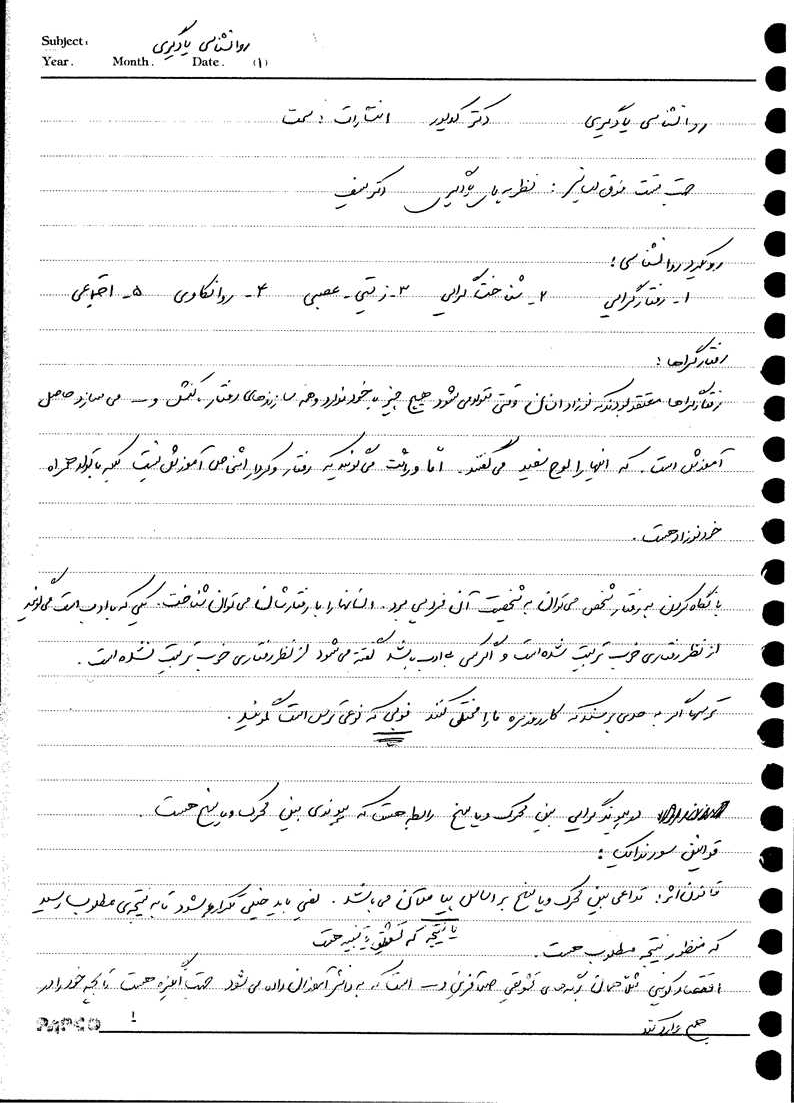 Subject: روانشناسی یادگیری
Year. Month. Date. (۱)
روانشناسی یادگیری دکتر کدیور انتشارات: سمت
جهت تست فوق لیسانس: نظریه های یادگیری دکتر سیف
رویکرد روانشناسی:
۱- رفتارگرایی ۲- شناخت گرایی ۳- زیستی - عصبی ۴- روانکاوی ۵- اجتماعی
رفتارگراها:
رفتارگراها معتقد بودند که نوزاد انسان وقتی متولد می شود هیچ چیز با خود ندارد و همه سازندهای رفتار، کنش و ... می سازد حاصل
آموزش است. که آنها را لوح سفید می گفتند. اما وراثت می گویند که رفتار و کردار اشخاص آموزش نیست بلکه با تولد همراه
خود نوزاد هست.
با نگاه کردن به رفتار شخص می توان به شخصیت آن فرد پی برد. انسانها را با رفتارشان می توان شناخت. کسی که با ادب است می گویند
از نظر رفتاری خوب تربیت شده است و اگر کسی بی ادب باشد گفته می شود از نظر رفتاری خوب تربیت نشده است.
ترسها اگر به حدی برسند که کار روزمره ما را مختل کند فوبی که نوعی ترس است گویند.
در پیوندگرایی بین محرک و پاسخ رابطه هست که پیوندی بین محرک و پاسخ هست.
قوانین ثورندایک:
قانون اثر: تداعی بین محرک و پاسخ بر اساس می باشد. یعنی باید خیلی تکرار بشود تا به نتیجه ی مطلوب رسید
یا نتیجه که تشویق یا تنبیه هست
که منظور نتیجه مطلوب هست.
اقتصاد ژتونی مثلا همان برگه های تشویقی صد آفرین و ... است که به دانش آموزان داده می شود جهت انگیزه هست تا بچه خود را در
جمع وارد کند
PAPCO 1